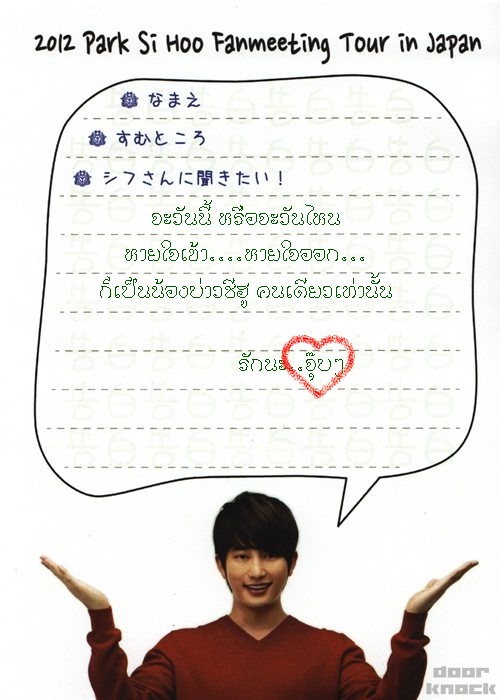 2012 Park Si Hoo Fanmeeting Tour in Japan
なまえ
すむところ
シフさんに聞きたい！
จะวันนี้ หรือจะวันไหน
หายใจเข้า....หายใจออก...
ก็เป็นน้องบ่าวซีฮู คนเดียวเท่านั้น
รักนะ..จุ๊บๆ
door
knock